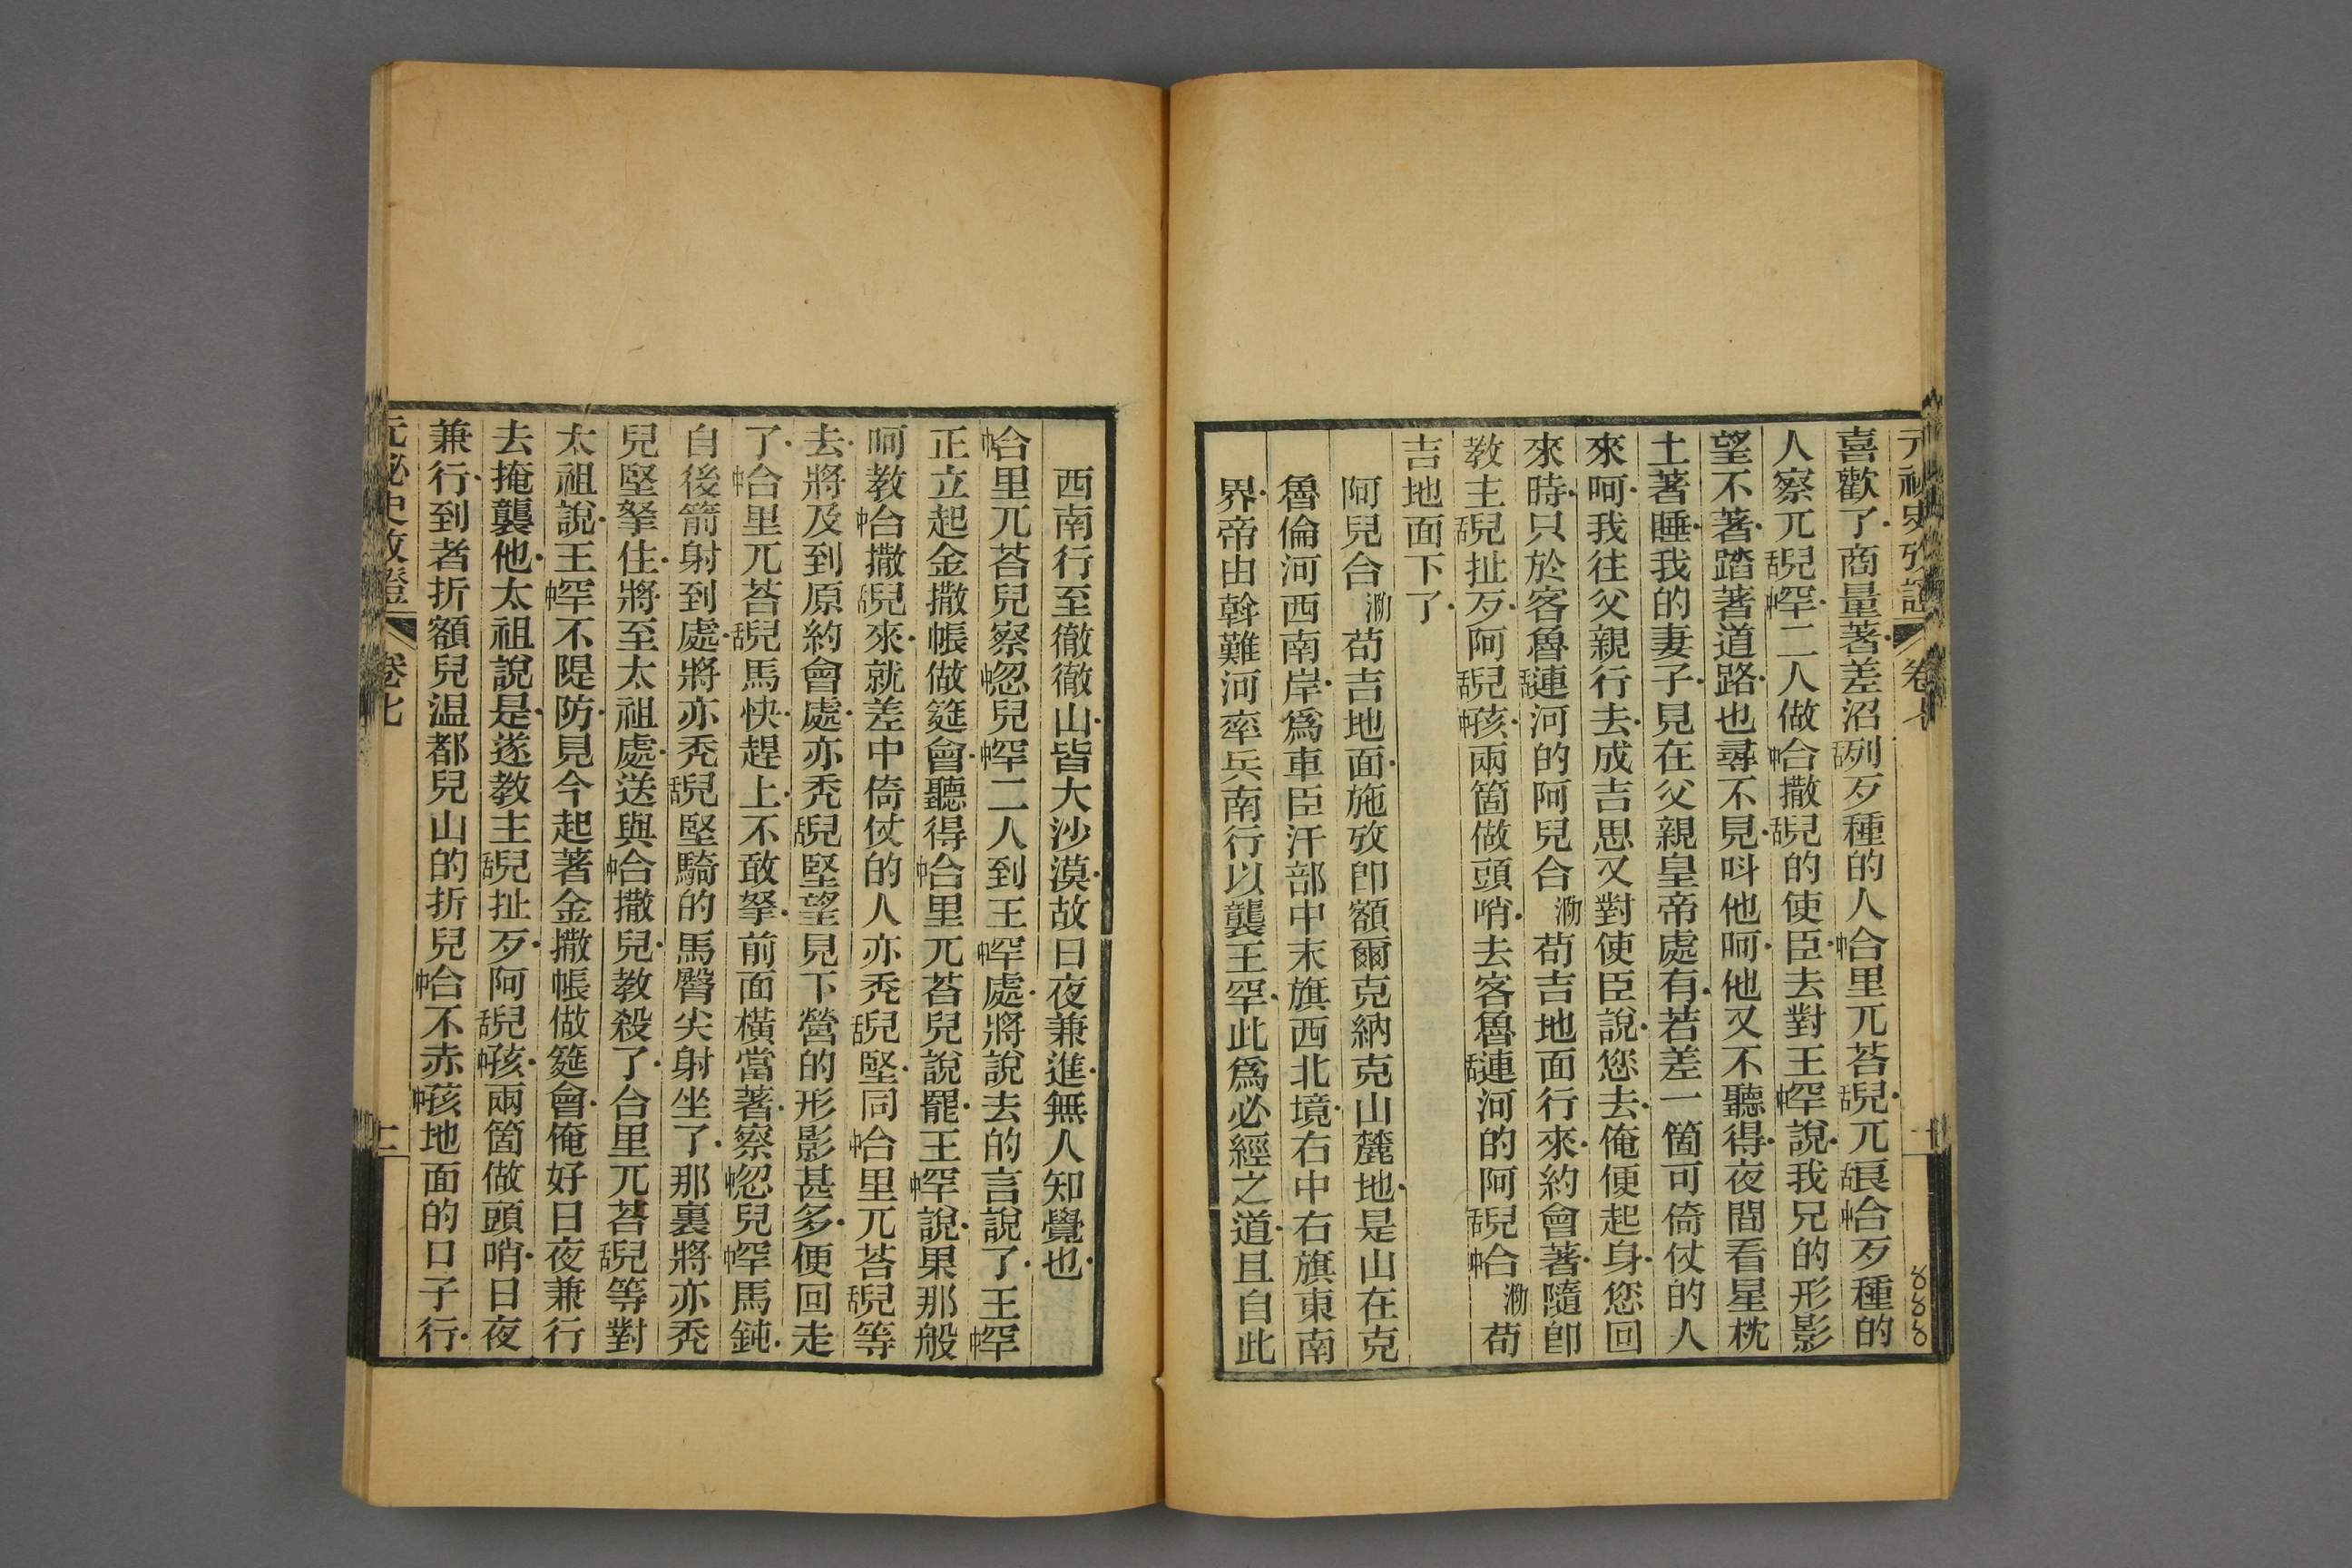 元祕史攷證 卷七 一
喜歡了商量著差沼舌列歹種的人中合里兀荅舌兒兀舌良中合歹種的
人察兀舌兒中罕二人做中合撒舌兒的使臣去對王中罕說我兄的形影
望不著踏著道路也尋不見呌他呵他又不聽得夜間看星枕
土著睡我的妻子見在父親皇帝處有若差一箇可倚仗的人
來呵我往父親行去成吉思又對使臣說您去俺便起身您回
來時只於客魯舌連河的阿兒合泐苟吉地面行來約會著隨卽
教主舌兒扯歹阿舌兒中孩兩箇做頭哨去客魯舌連河的阿舌兒中合泐苟
吉地面下了
阿兒合泐苟吉地面施攷卽額爾克納克山麓地是山在克
魯倫河西南岸爲車臣汗部中末旗西北境右中右旗東南
界帝由斡難河率兵南行以襲王罕此爲必經之道且自此
西南行至徹徹山皆大沙漠故日夜兼進無人知覺也
中合里兀荅兒察中忽兒中罕二人到王中罕處將說去的言說了王中罕
正立起金撒帳做筵會聽得中合里兀荅兒說罷王中罕說果那般
呵教中合撒舌兒來就差中倚仗的人亦禿舌兒堅同中合里兀荅舌兒等
去將及到原約會處亦禿舌兒堅望見下營的形影甚多便回走
了中合里兀荅舌兒馬快趕上不敢拏前面橫當著察中忽兒中罕馬鈍
自後箭射到處將亦禿舌兒堅騎的馬臀尖射坐了那裏將亦禿
兒堅拏住將至太祖處送與中合撒兒教殺了合里兀荅舌兒等對
太祖說王中罕不隄防見今起著金撒帳做筵會俺好日夜兼行
去掩襲他太祖說是遂教主舌兒扯歹阿舌兒中孩兩箇做頭哨日夜
兼行到者折額兒温都兒山的折兒中合不赤中孩地面的口子行
元祕史攷證 卷七 二
888